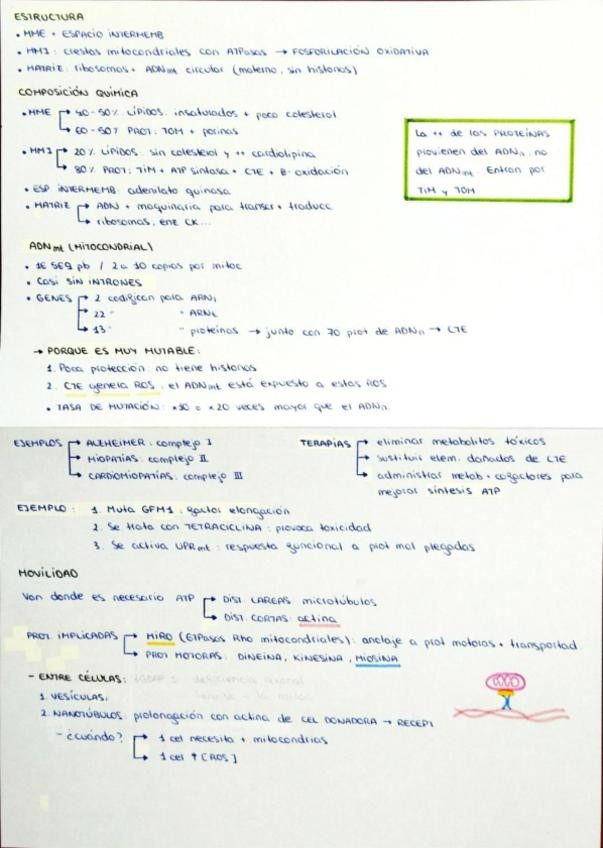 ESTRUCTURA
• MME + ESPACIO INTERMEMB
• MMI: crestas mitocondriales con ATPasas → FOSFORILACIÓN OXIDATIVA
• MATRIZ: ribosomas + ADNmt circular (materno, sin histonas)
COMPOSICIÓN QUÍMICA
• MME → 40-50% LÍPIDOS: insaturados + poco colesterol
→ 60-50% PROT: TOM + porinas
• MMI → 20% LÍPIDOS: sin colesterol y ++ cardiolipina
→ 80% PROT: TIM + ATP sintasa + CTE + B-oxidación
• ESP INTERMEMB: adenilato quinasa
• MATRIZ → ADN + maquinaria para transcr + traducc
→ ribosomas, enz CK...
La ++ de las PROTEÍNAS
provienen del ADNn, no
del ADNmt. Entran por
TIM y TOM
ADNmt (MITOCONDRIAL)
• 16 569 pb / 2 a 10 copias por mitoc
• Casi SIN INTRONES
• GENES → 2 codifican para ARNr
→ 22 " " ARNt
→ 13 " " proteínas → junto con 70 prot de ADNn → CTE
→ PORQUE ES MUY MUTABLE:
1. Poca protección: no tiene histonas
2. CTE genera ROS: el ADNmt está expuesto a estas ROS
• TASA DE MUTACIÓN: x10 o x20 veces mayor que el ADNn
EJEMPLOS → ALZHEIMER: complejo I
→ MIOPATÍAS: complejo II
→ CARDIOMIOPATÍAS: complejo III
TERAPIAS → eliminar metabolitos tóxicos
→ sustituir elem. dañados de CTE
→ administrar metab + cofactores para
mejorar síntesis ATP
EJEMPLO: 1. Muta GFM1: factor elongación
2. Se trata con TETRACICLINA: provoca toxicidad
3. Se activa UPRmt: respuesta funcional a prot mal plegadas
MOVILIDAD
Van donde es necesario ATP → DIST. LARGAS microtúbulos
→ DIST. CORTAS: actina
PROT. IMPLICADAS → MIRO (GTPasas Rho mitocondriales): anclaje a prot motoras + transportad
→ PROT MOTORAS: DINEÍNA, KINESINA, MIOSINA
- ENTRE CÉLULAS:
1. VESÍCULAS
2. NANOTÚBULOS: prolongación con actina de CEL DONADORA → RECEPT
- ¿cuándo? → 1 cel necesita + mitocondrias
→ 1 cel ↑ [ROS]